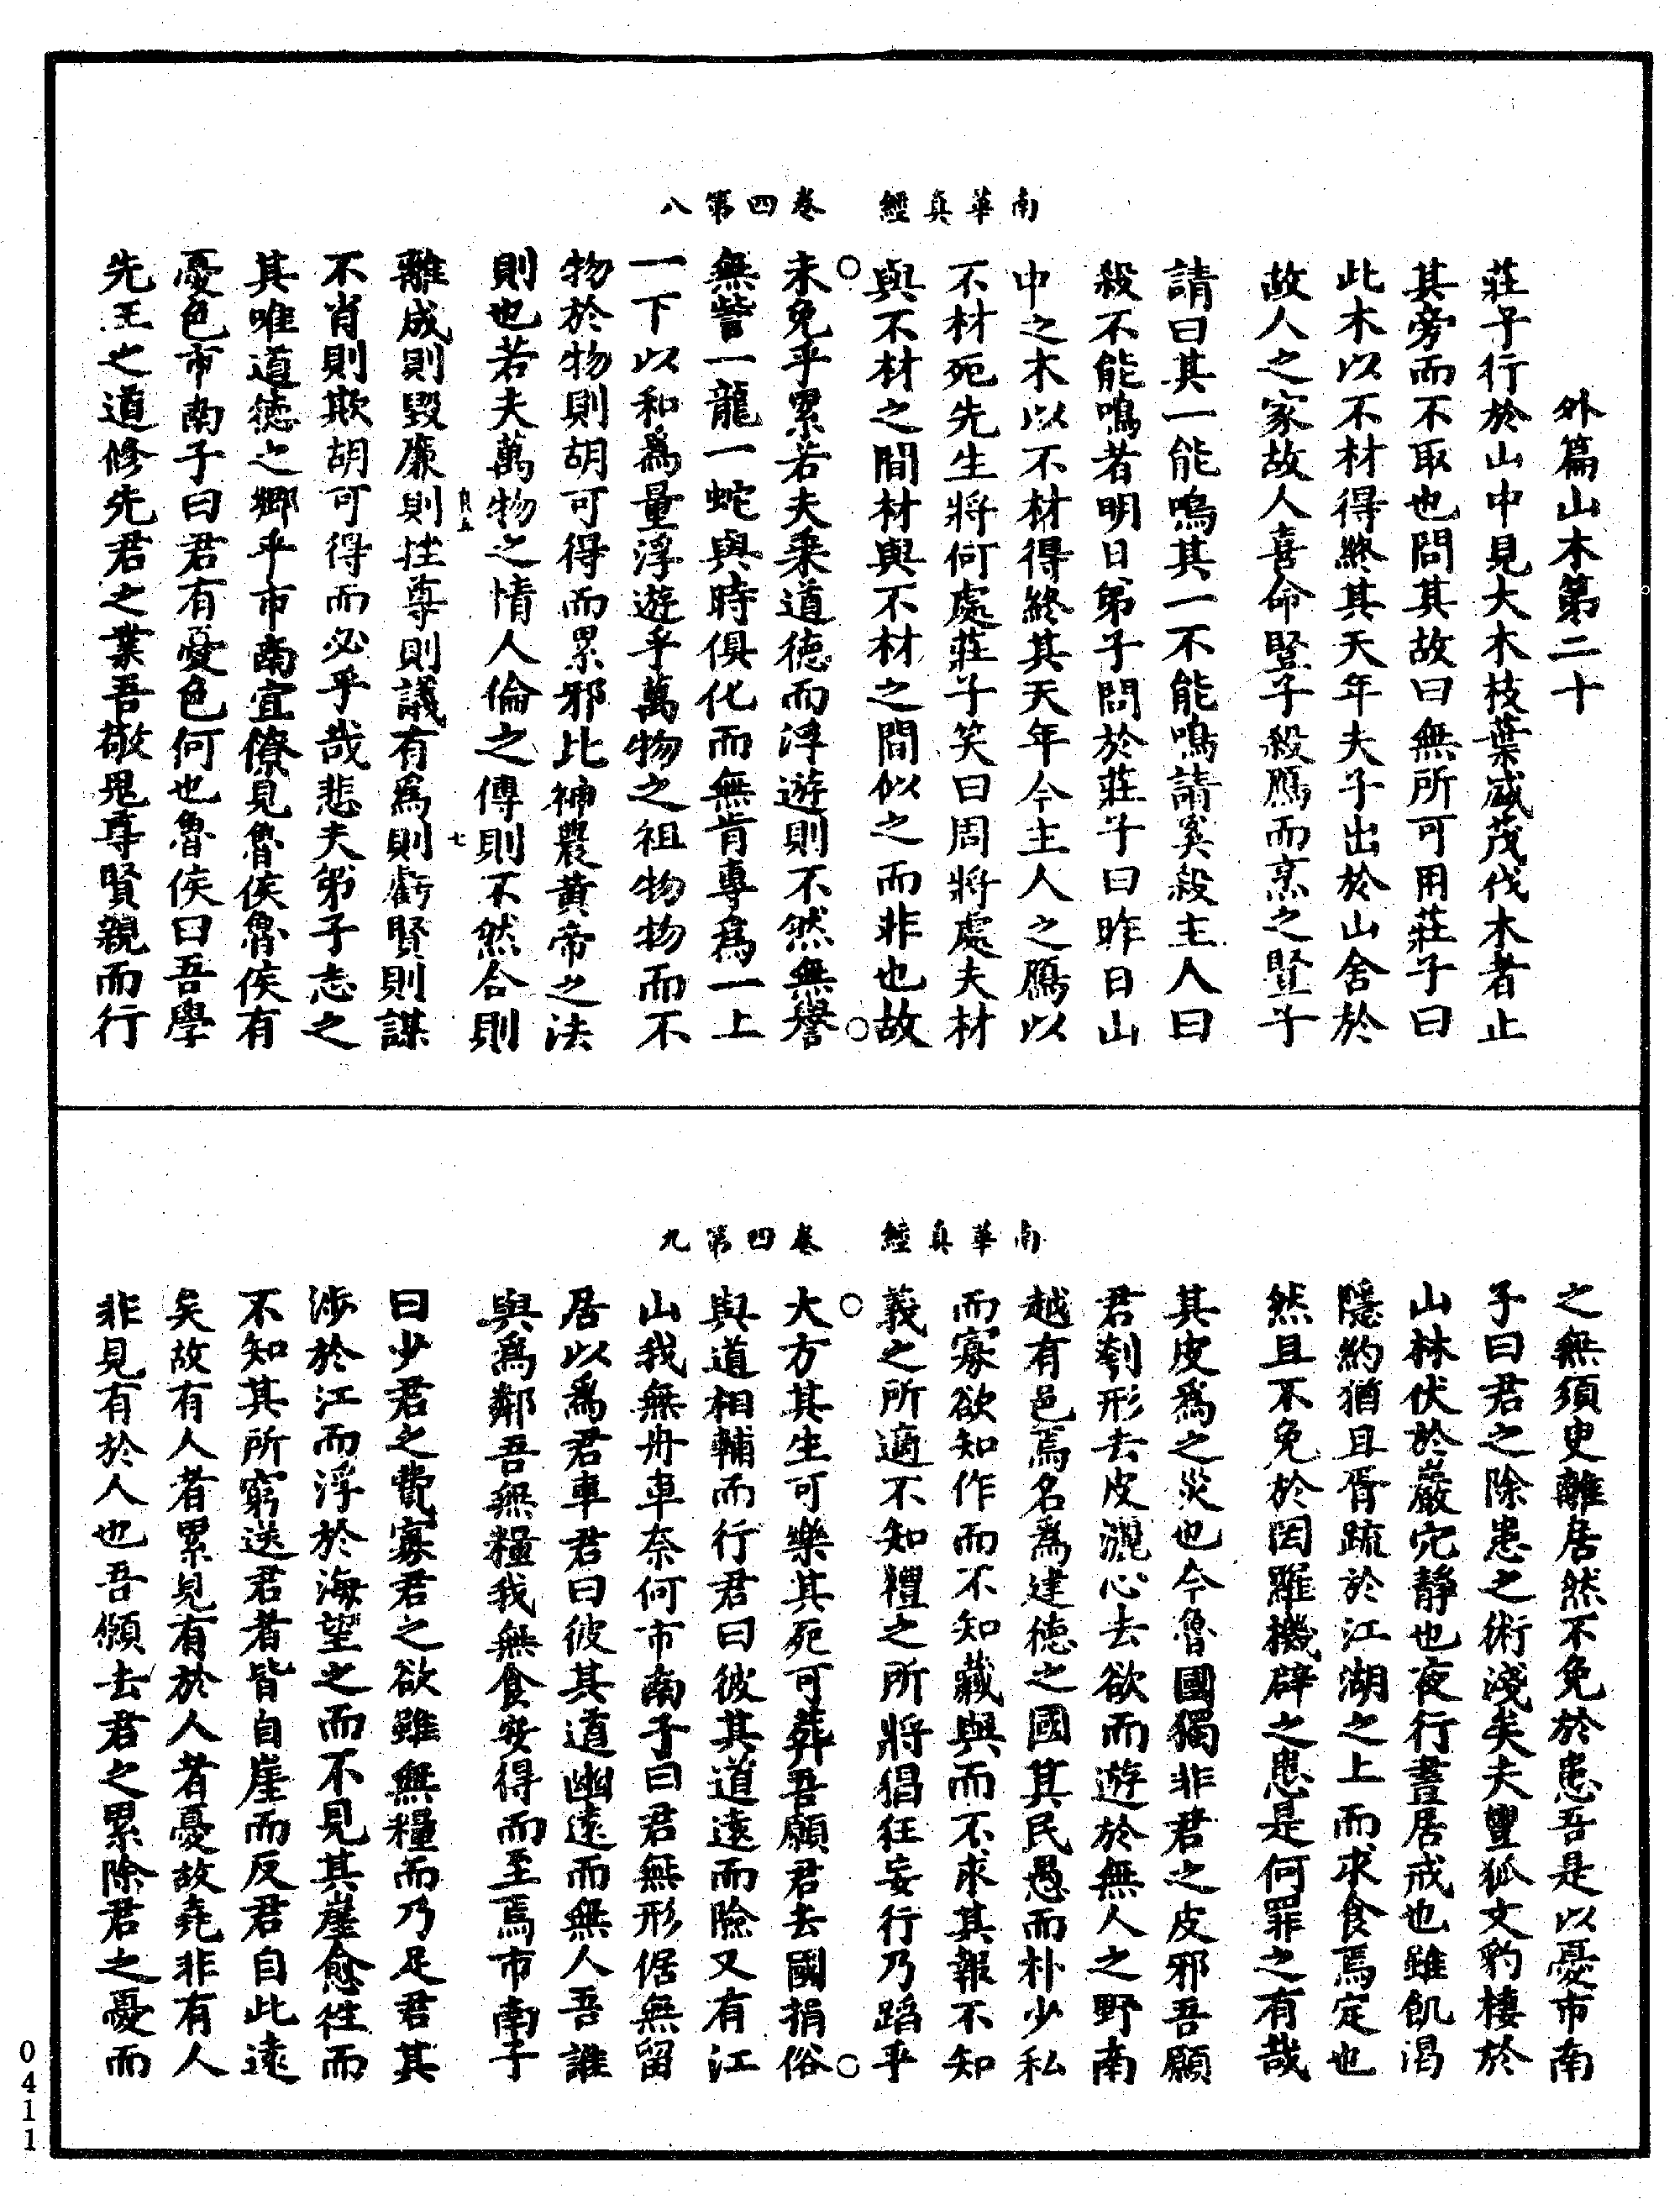 南華真經　卷四第八
外篇山木第二十
莊子行於山中見大木枝葉盛茂伐木者止
其旁而不取也問其故曰無所可用莊子曰
此木以不材得終其天年夫子出於山舍於
故人之家故人喜命豎子殺鴈而烹之豎子
請曰其一能鳴其一不能鳴請奚殺主人曰
殺不能鳴者明日弟子問於莊子曰昨日山
中之木以不材得終其天年今主人之鴈以
不材死先生將何處莊子笑曰周將處夫材
與不材之間材與不材之間似之而非也故
未免乎累若夫乘道德而浮遊則不然無譽
無訾一龍一蛇與時俱化而無肯專爲一上
一下以和爲量浮遊乎萬物之祖物物而不
物於物則胡可得而累邪比神農黃帝之法
則也若夫萬物之情人倫之傳則不然合則
七
離成則毀廉則挫尊則議有爲則虧賢則謀
不肖則欺胡可得而必乎哉悲夫弟子志之
其唯道德之鄉乎市南宜僚見魯侯魯侯有
憂色市南子曰君有憂色何也魯侯曰吾學
先王之道修先君之業吾敬鬼尊賢親而行
南華真經　卷四第九
之無須臾離居然不免於患吾是以憂市南
子曰君之除患之術淺矣夫豐狐文豹棲於
山林伏於巖穴靜也夜行晝居戒也雖飢渴
隱約猶且胥疏於江湖之上而求食焉定也
然且不免於罔羅機辟之患是何罪之有哉
其皮爲之災也今魯國獨非君之皮邪吾願
君刳形去皮灑心去欲而遊於無人之野南
越有邑焉名爲建德之國其民愚而朴少私
而寡欲知作而不知藏與而不求其報不知
義之所適不知禮之所將猖狂妄行乃蹈乎
大方其生可樂其死可葬吾願君去國捐俗
與道相輔而行君曰彼其道遠而險又有江
山我無舟車奈何市南子曰君無形倨無留
居以爲君車君曰彼其道幽遠而無人吾誰
與爲鄰吾無糧我無食安得而至焉市南子
曰少君之費寡君之欲雖無糧而乃足君其
涉於江而浮於海望之而不見其崖愈往而
不知其所窮送君者皆自崖而反君自此遠
矣故有人者累見有於人者憂故堯非有人
非見有於人也吾願去君之累除君之憂而
0411